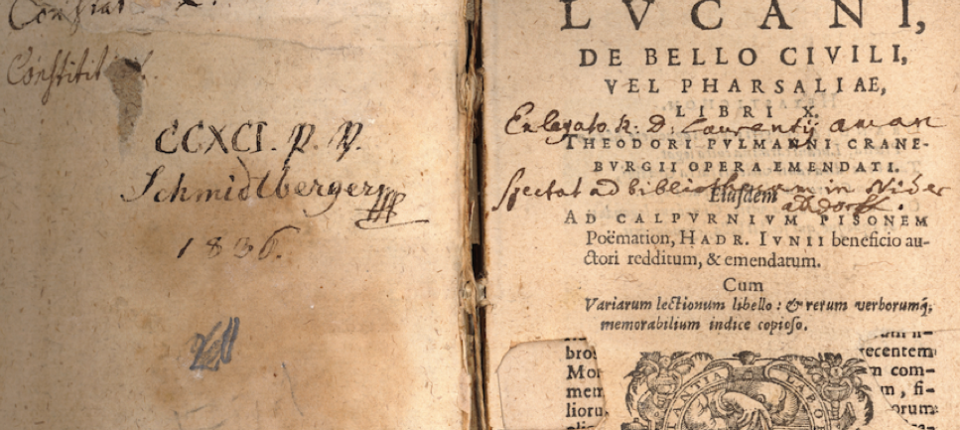 Constitit
CCXCI. p. p.
Schmidlberger
1836.
LVCANI,
DE BELLO CIVILI,
VEL PHARSALIAE,
LIBRI X.
Ex legato R. D. Laurentij aman
THEODORI PVLMANNI CRANE-
BVRGII OPERA EMENDATI.
spectat ad bibliothecam in Nider
Eiusdem
altdorff.
AD CALPVRNIVM PISONEM
Poëmation, HADR. IVNII beneficio au-
ctori redditum, & emendatum.
Cum
Variarum lectionum libello: & rerum verborumq́;
memorabilium indice copioso.
recentem
m com-
m, fi-
orum
LABO